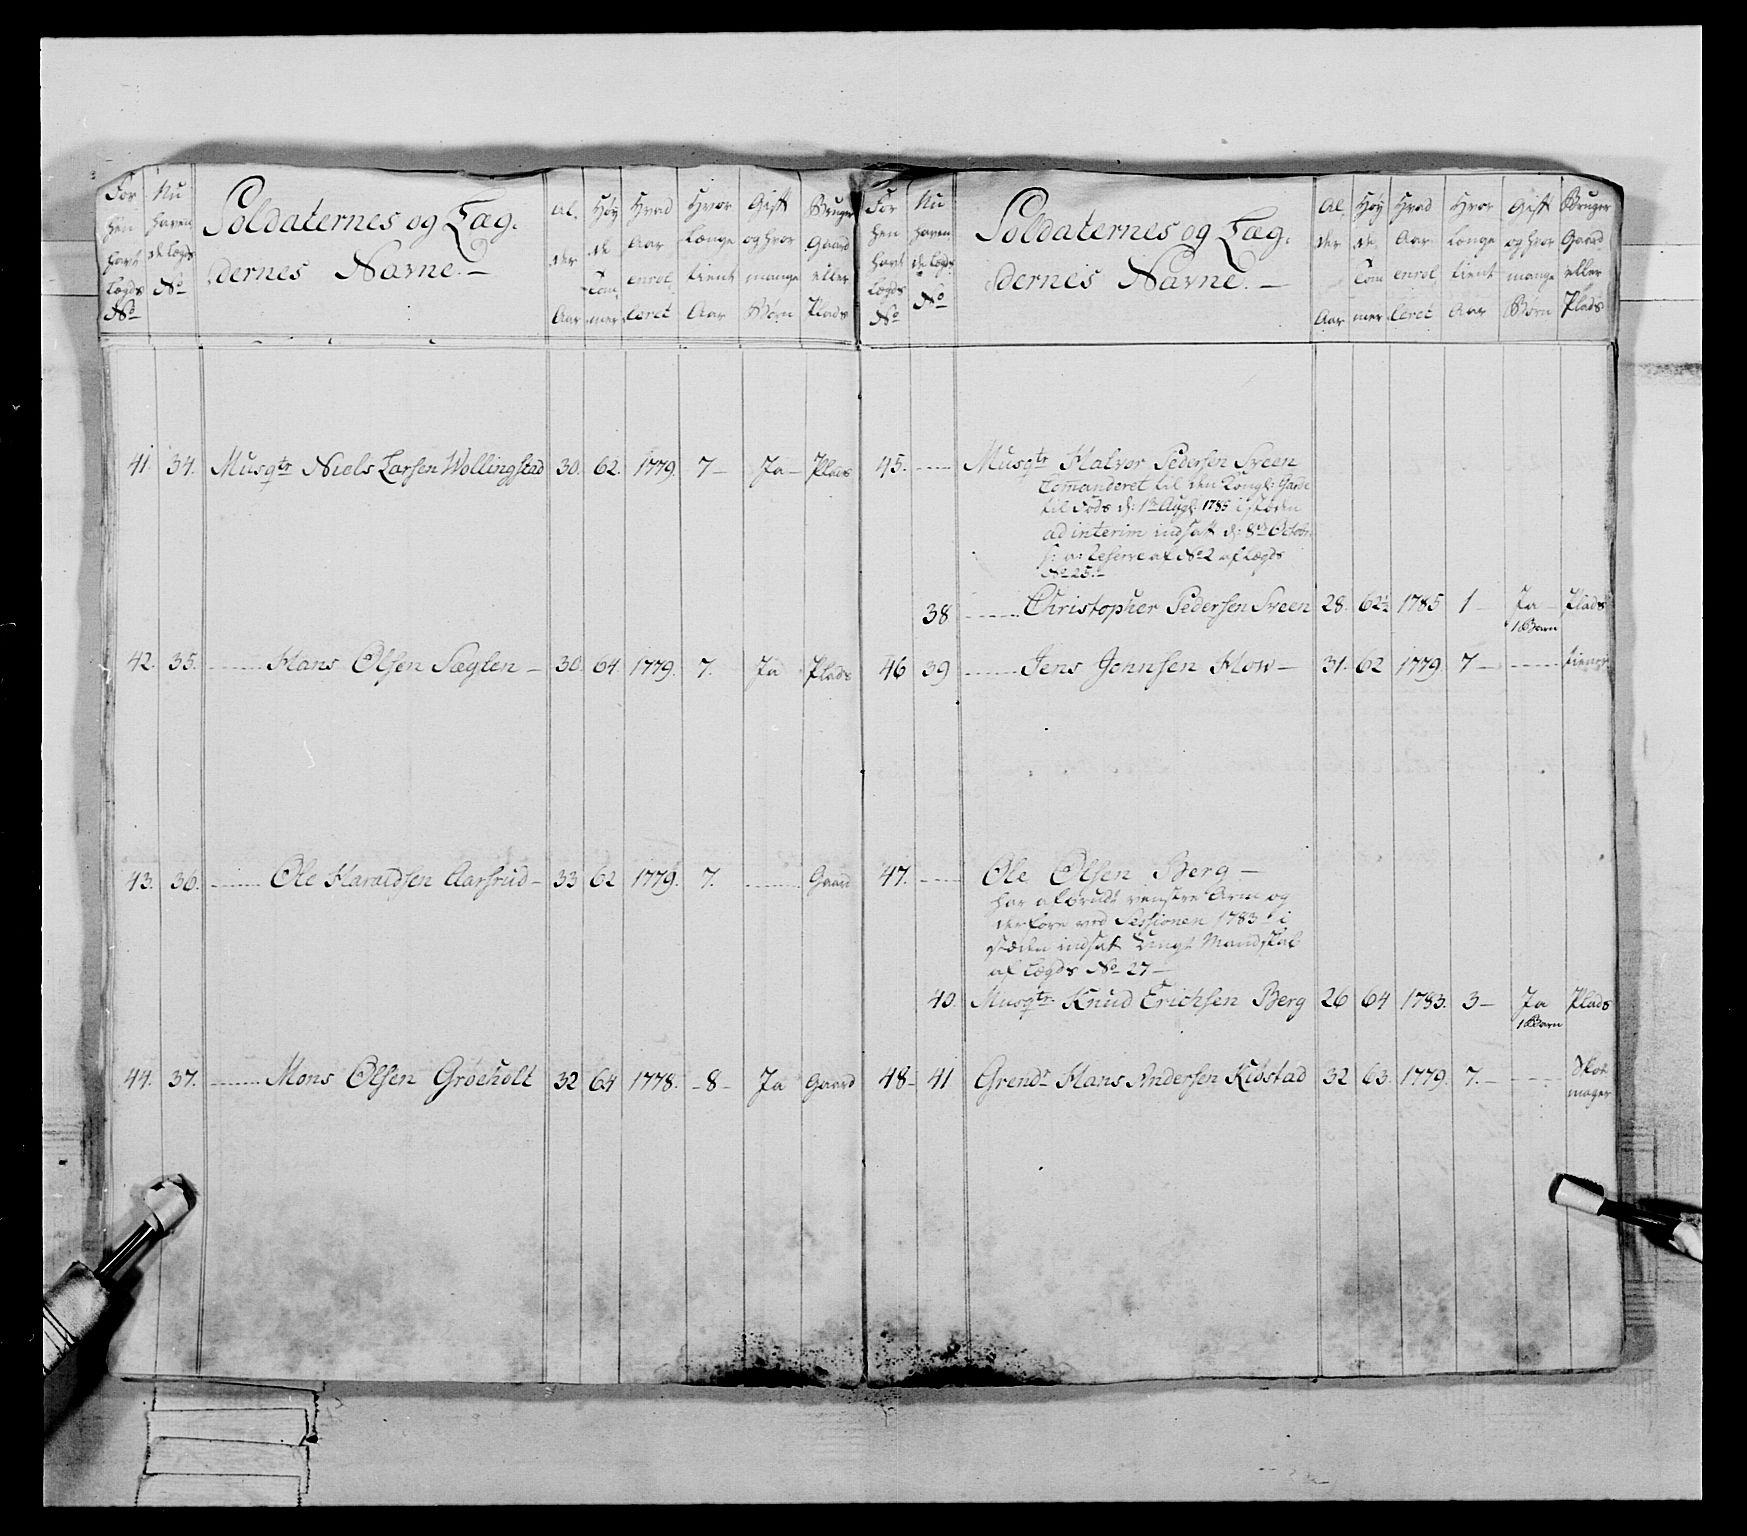 For hen havt Lægds No
Nu haven de Lægds No
Soldaternes og Læg- dernes Navne. —
Al- der Aar
Høy de Tom mer
Hvad Aar enrol leret
Hvor Længe tient Aar
Gift og hvor mange Børn
Bruger Gaard eller Plads
41. 34. Musqtr Niels Larsen Wollingstad 30. 62. 1779. 7 — Ja — Plads
42. 35. Hans Olsen Sæglen — 30. 64. 1779. 7. Ja Plads
43. 36. Ole Haraldsen Aarsrud — 33 62 1779. 7. Gaard
44. 37. Mons Olsen Grøeholt 32 64 1778. — 8 — Ja Gaard
For hen havt Lægds No
Nu haven de Lægds No
Soldaternes og Læg- dernes Navne. —
Al- der Aar
Høy de Tom mer
Hvad Aar enrol leret
Hvor Længe tient Aar
Gift og hvor mange Børn
Bruger Gaard eller Plads
45. Musqtr Halvor Pedersen Sveen
Comanderet til den Kongl: Garde
til Fods d: 1te Aug: 1785 i støden
ad interim indsatt d: 8de Octobr
s: a: Reserve af No 2 af Lægds
No 25. —
38. Christopher Pedersen Sveen 28. 62½ 1785 1 — Ja — Plads
1 Barn
46 39 Jens Johnsen How — 31. 62 1779 7 — tiener
47. Ole Olsen Berg —
har afbrudt venstre Arm og
derfore ved Sessionen 1783 i
støden indsat Ungt Mandskab
af Lægds No 27 —
40. Musqtr Knud Erichsen Berg 26 64 1783. 3 — Ja Plads
1 Barn
48 — 41 Grendr Hans Andersen Kiøstad 32 63. 1779. 7. — Skoe
mager